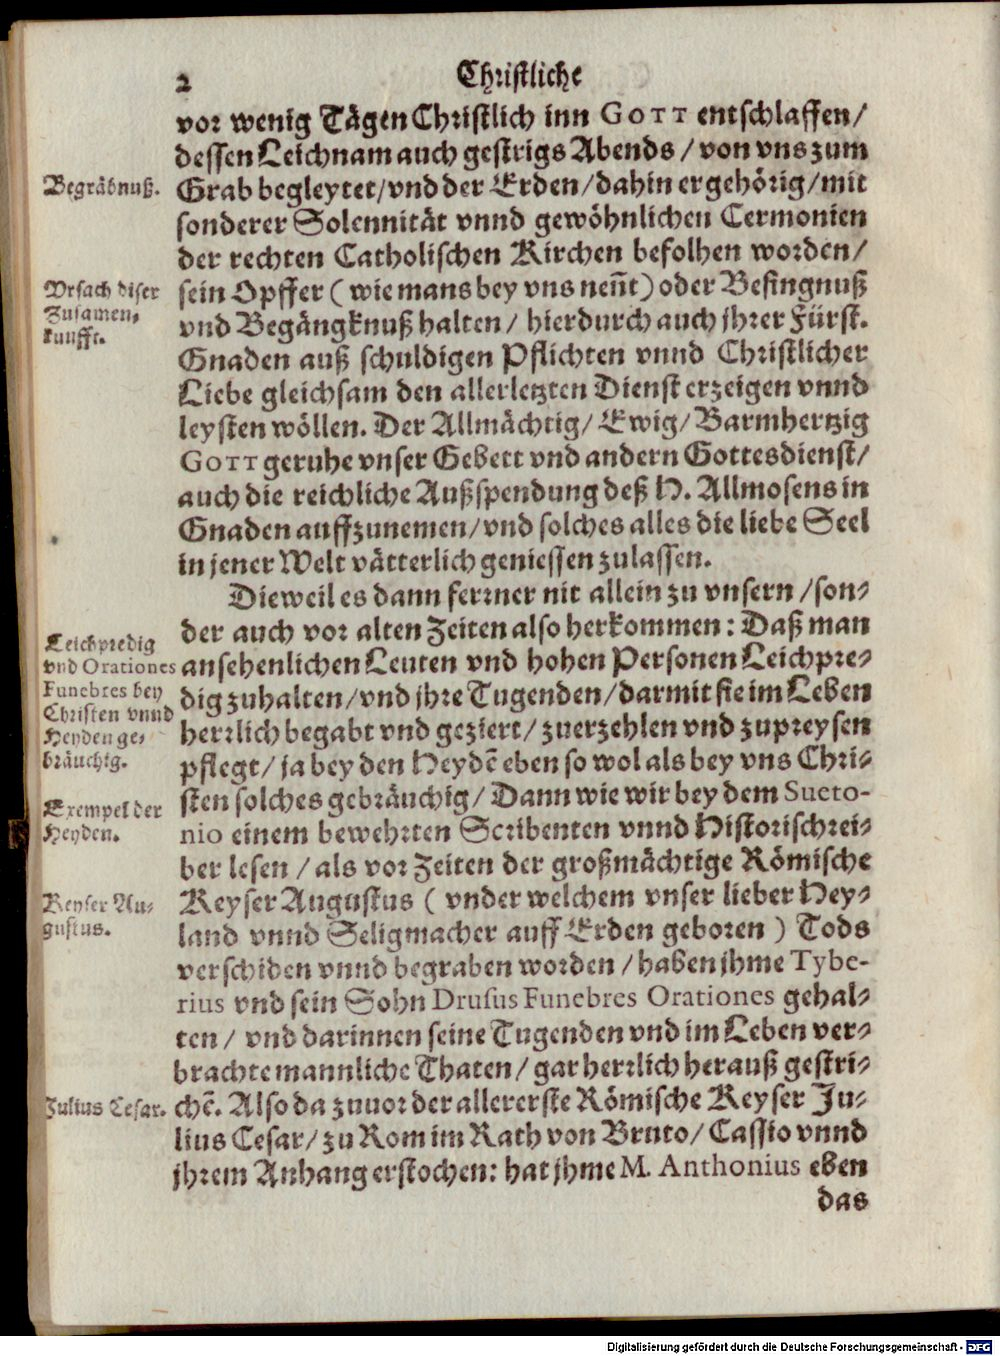 2 Christliche
vor wenig Tägen Christlich inn GOTT entschlaffen/
dessen Leichnam auch gestrigs Abends / von vns zum
Begräbnuß.
Grab begleytet/vnd der Erden/dahin er gehörig/mit
sonderer Solennität vnnd gewöhnlichen Cermonien
der rechten Catholischen Kirchen befolhen worden/
Vrsach diser
Zusamen⸗
kunfft.
sein Opffer ( wie mans bey vns neñt ) oder Besingnuß
vnd Begängknuß halten / hierdurch auch jhrer Fürst.
Gnaden auß schuldigen Pflichten vnnd Christlicher
Liebe gleichsam den allerletzten Dienst erzeigen vnnd
leysten wöllen. Der Allmächtig/ Ewig/ Barmhertzig
GOTT geruhe vnser Gebett vnd andern Gottesdienst/
auch die reichliche Außspendung deß H. Allmosens in
Gnaden auffzunemen/vnd solches alles die liebe Seel
in jener Welt vätterlich geniessen zulassen.
Dieweil es dann ferrner nit allein zu vnsern /son⸗
der auch vor alten Zeiten also herkommen: Daß man
Leichpredig
vnd Orationes
Funebres bey
Christen vnnd
Heyden ge⸗
bräuchig.
ansehenlichen Leuten vnd hohen Personen Leichpre⸗
dig zuhalten/vnd jhre Tugenden/darmit sie im Leben
herrlich begabt vnd geziert/ zuerzehlen vnd zupreysen
pflegt/ ja bey den Heydē eben so wol als bey vns Chri⸗
Exempel der
Heyden.
sten solches gebräuchig/ Dann wie wir bey dem Sueto-
nio einem bewehrten Scribenten vnnd Historischrei⸗
ber lesen / als vor Zeiten der großmächtige Römische
Keyser Au⸗
gustus.
Keyser Augustus ( vnder welchem vnser lieber Hey⸗
land vnnd Seligmacher auff Erden geboren ) Tods
verschiden vnnd begraben worden / haben jhme Tybe-
rius vnd sein Sohn Drusus Funebres Orationes gehal⸗
ten / vnd darinnen seine Tugenden vnd im Leben ver⸗
brachte mannliche Thaten/ gar herrlich herauß gestri⸗
Julius Cesar.
chē. Also da zuuor der allererste Römische Keyser Ju⸗
lius Cesar/ zu Rom im Rath von Bruto/ Cassio vnnd
jhrem Anhang erstochen: hat jhme M. Anthonius eben
das
Digitalisierung gefördert durch die Deutsche Forschungsgemeinschaft - DFG